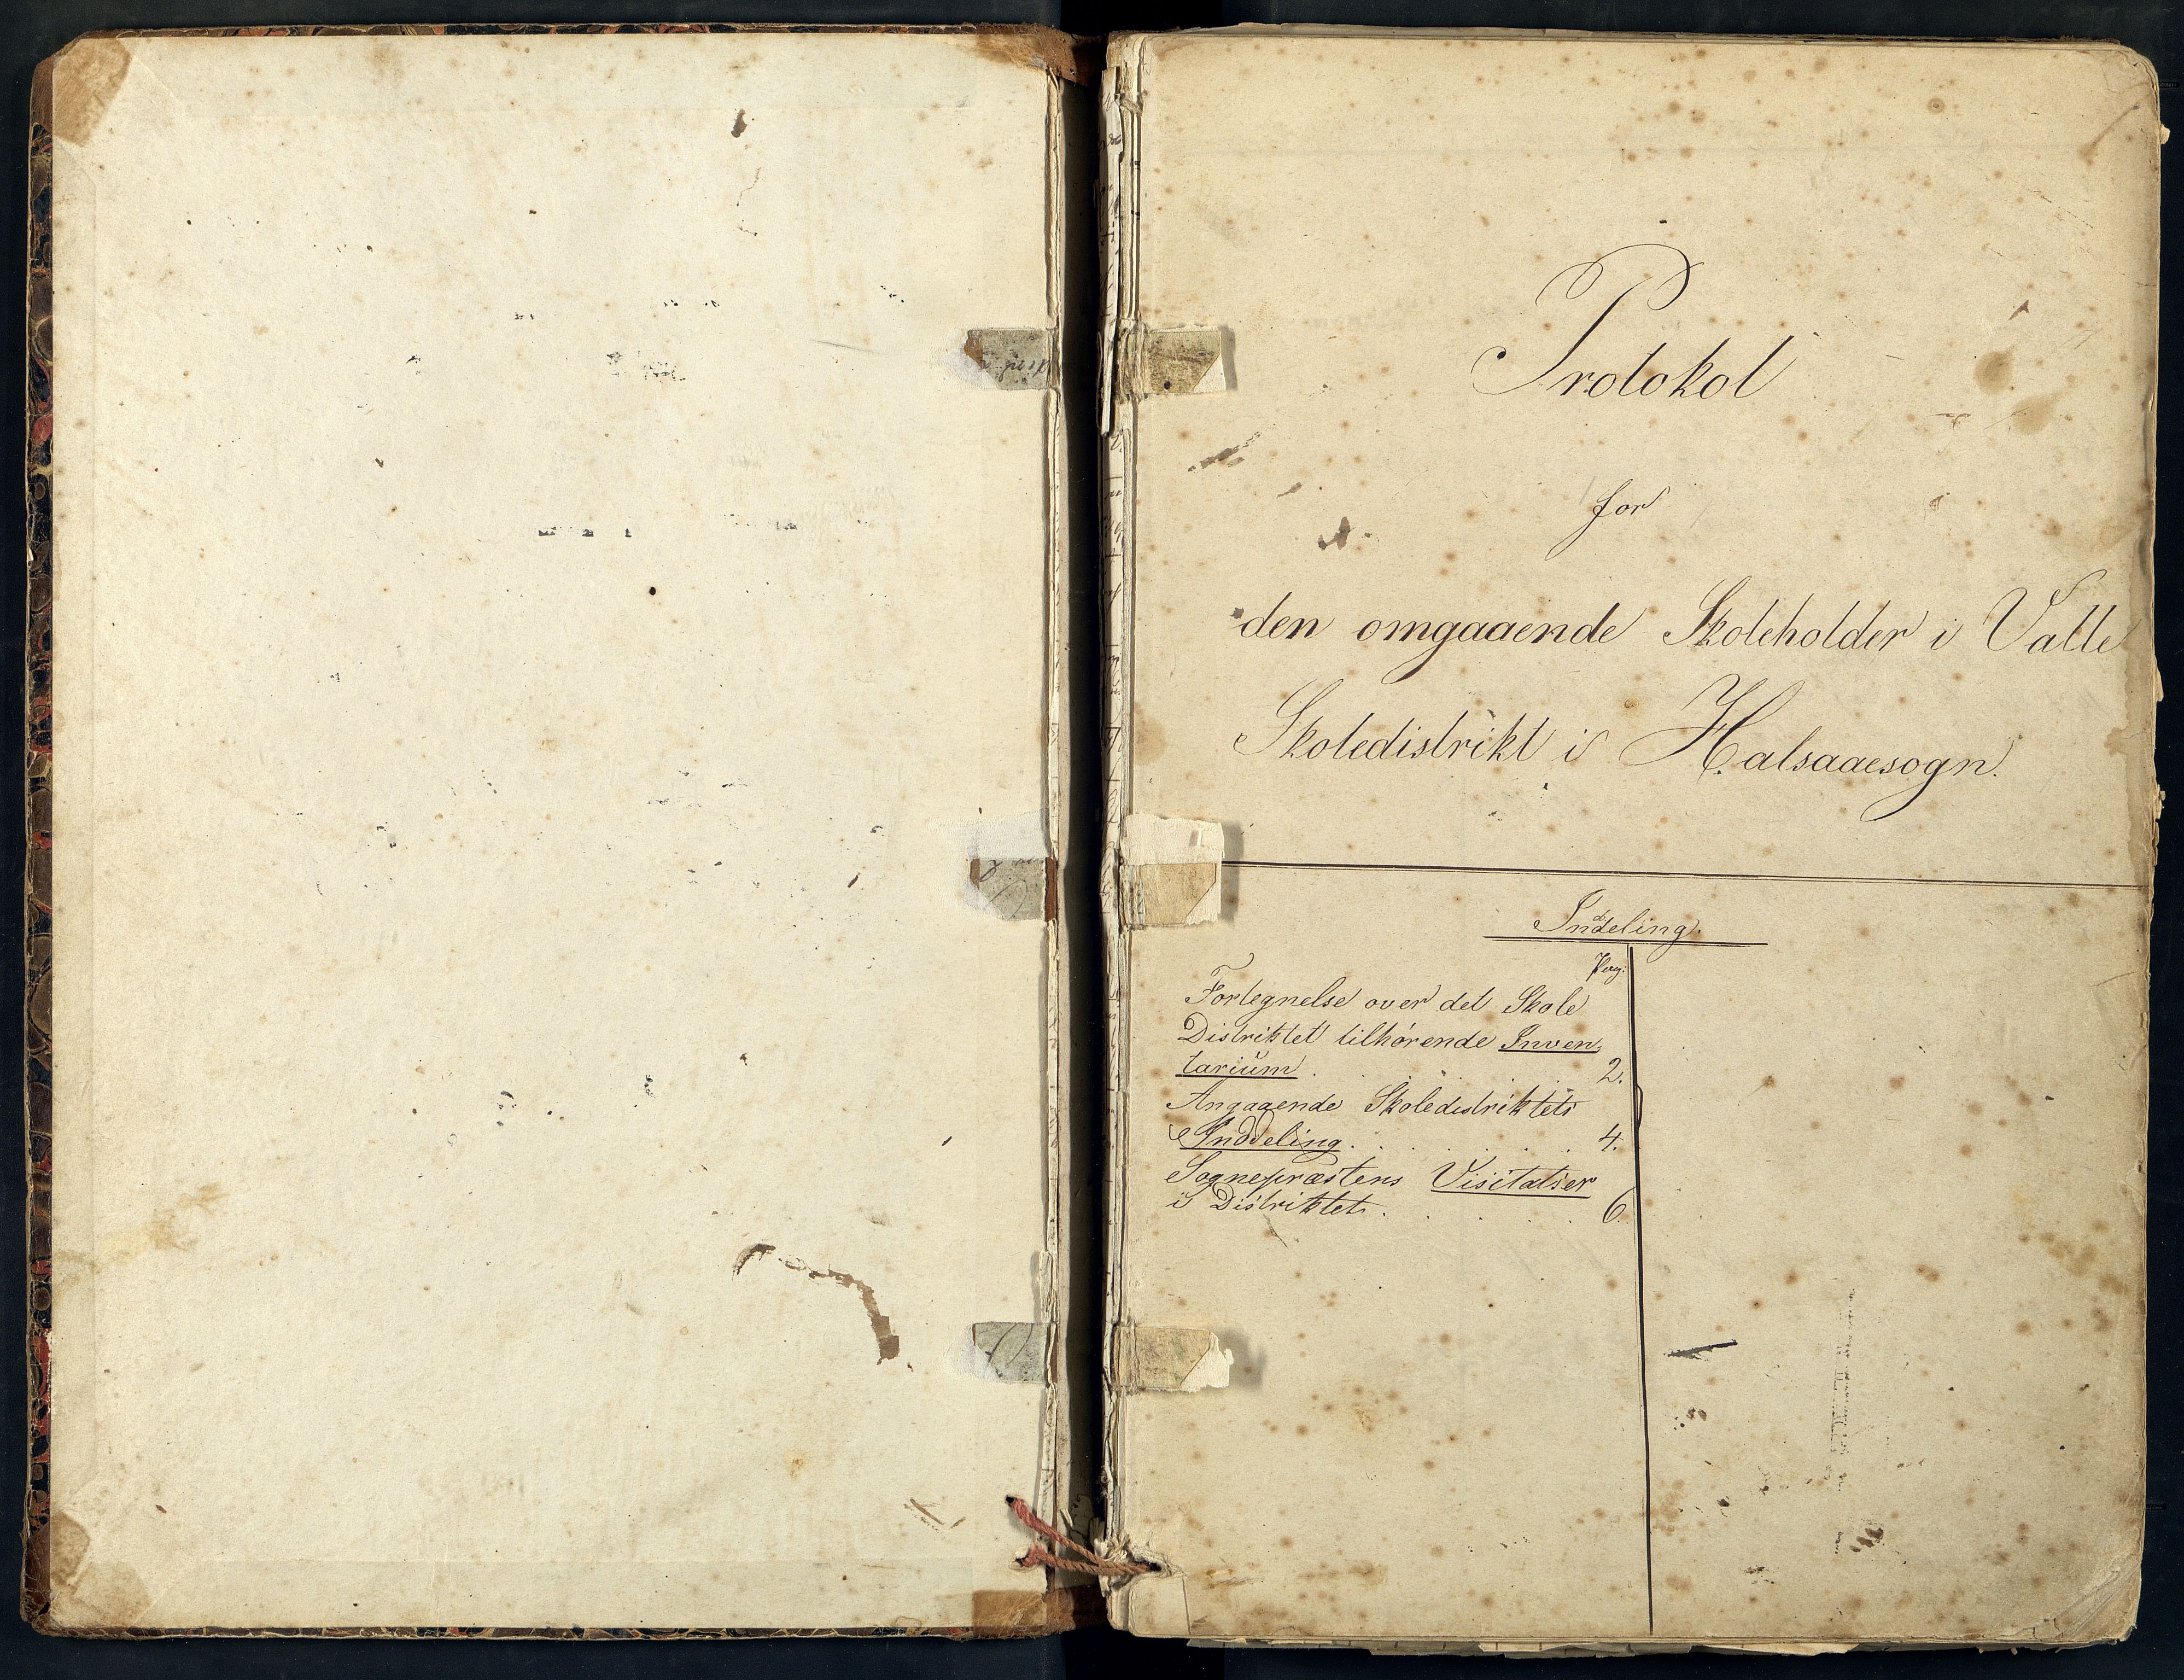 Protokol
for
den omgaaende Skoleholder i Valle
Skoledistrikt i Halsaaesogn.
Inddeling.
Pag.
Fortegnelse over det Skole
Distriktet tilhørende Inven-
tarium . . . . . 2.
Angaaende Skoledistriktets
Inddeling . . . . . 4.
Sognepræstens Visitatser
i Distriktet . . . . 6.